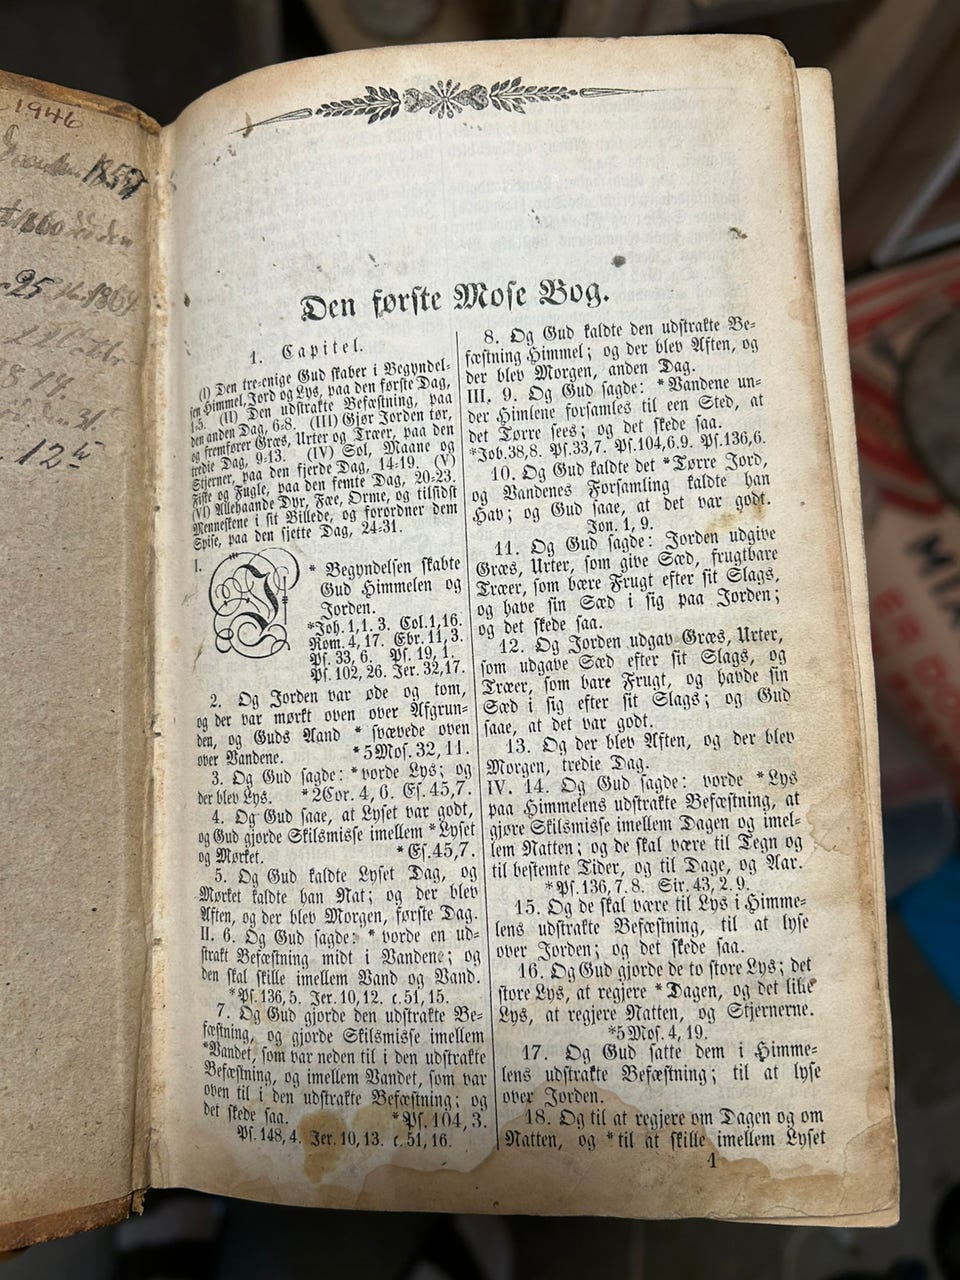 1946
1857
1860
25 1864
1874.
31.
12
Den første Mose Bog.
1. Capitel.
(I) Den tre-enige Gud skaber i Begyndel-
sen Himmel, Jord og Lys, paa den første Dag,
1-5. (II) Den udstrakte Befæstning, paa
den anden Dag, 6-8. (III) Gjør Jorden tør,
og fremfører Græs, Urter og Træer, paa den
tredie Dag, 9-13. (IV) Sol, Maane og
Stjerner, paa den fjerde Dag, 14-19. (V)
Fiske og Fugle, paa den femte Dag, 20-23.
(VI) Allehaande Dyr, Fæe, Orme, og tilsidst
Menneskene i sit Billede, og forordner dem
Spise, paa den sjette Dag, 24-31.
I. I * Begyndelsen skabte
Gud Himmelen og
Jorden.
*Joh. 1, 1. 3. Col. 1, 16.
Rom. 4, 17. Ebr. 11, 3.
Ps. 33, 6. Ps. 19, 1.
Ps. 102, 26. Jer. 32, 17.
2. Og Jorden var øde og tom,
og der var mørkt oven over Afgrun-
den, og Guds Aand * svævede oven
over Vandene. *5 Mos. 32, 11.
3. Og Gud sagde: *vorde Lys; og
der blev Lys. *2 Cor. 4, 6. Es. 45, 7.
4. Og Gud saae, at Lyset var godt,
og Gud gjorde Skilsmisse imellem *Lyset
og Mørket. *Es. 45, 7.
5. Og Gud kaldte Lyset Dag, og
Mørket kaldte han Nat; og der blev
Aften, og der blev Morgen, første Dag.
II. 6. Og Gud sagde: * vorde en ud-
strakt Befæstning midt i Vandene; og
den skal skille imellem Vand og Vand.
*Ps. 136, 5. Jer. 10, 12. c. 51, 15.
7. Og Gud gjorde den udstrakte Be-
fæstning, og gjorde Skilsmisse imellem
*Vandet, som var neden til i den udstrakte
Befæstning, og imellem Vandet, som var
oven til i den udstrakte Befæstning; og
det skede saa. *Ps. 104, 3.
Ps. 148, 4. Jer. 10, 13. c. 51, 16.
8. Og Gud kaldte den udstrakte Be-
fæstning Himmel; og der blev Aften, og
der blev Morgen, anden Dag.
III. 9. Og Gud sagde: *Vandene un-
der Himlene forsamles til een Sted, at
det Tørre sees; og det skede saa.
*Job. 38, 8. Ps. 33, 7. Ps. 104, 6. 9. Ps. 136, 6.
10. Og Gud kaldte det *Tørre Jord,
og Vandenes Forsamling kaldte han
Hav; og Gud saae, at det var godt.
Jon. 1, 9.
11. Og Gud sagde: Jorden udgive
Græs, Urter, som give Sæd, frugtbare
Træer, som bære Frugt efter sit Slags,
og have sin Sæd i sig paa Jorden;
og det skede saa.
12. Og Jorden udgav Græs, Urter,
som udgave Sæd efter sit Slags, og
Træer, som bare Frugt, og havde sin
Sæd i sig efter sit Slags; og Gud
saae, at det var godt.
13. Og der blev Aften, og der blev
Morgen, tredie Dag.
IV. 14. Og Gud sagde: vorde *Lys
paa Himmelens udstrakte Befæstning, at
gjøre Skilsmisse imellem Dagen og imel-
lem Natten; og de skal være til Tegn og
til bestemte Tider, og til Dage, og Aar.
*Ps. 136, 7. 8. Sir. 43, 2. 9.
15. Og de skal være til Lys i Himme-
lens udstrakte Befæstning, til at lyse
over Jorden; og det skede saa.
16. Og Gud gjorde de to store Lys; det
store Lys, at regjere *Dagen, og det lille
Lys, at regjere Natten, og Stjernerne.
*5 Mos. 4, 19.
17. Og Gud satte dem i Himme-
lens udstrakte Befæstning; til at lyse
over Jorden.
18. Og til at regjere om Dagen og om
Natten, og *til at skille imellem Lyset
1